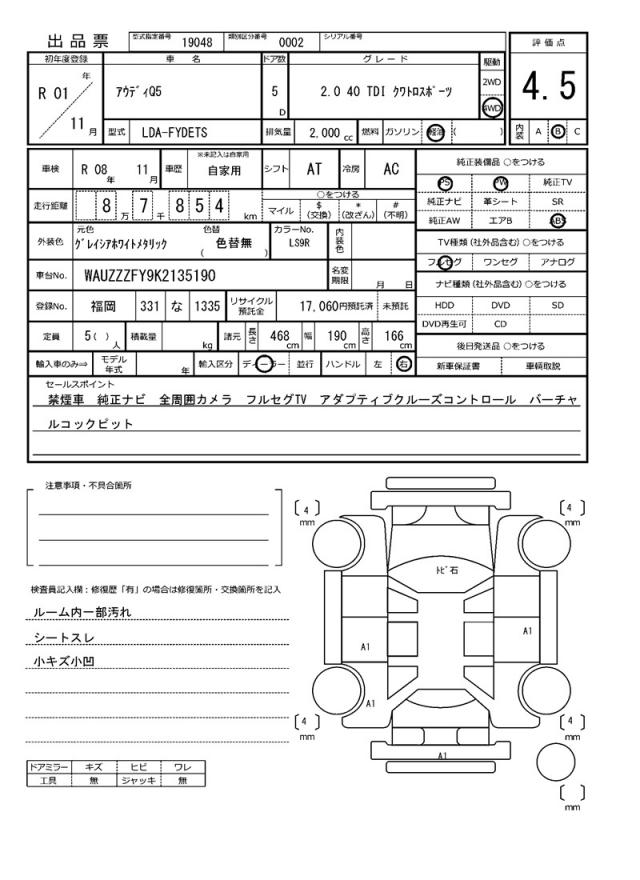 出品票 型式指定番号 19048 類別区分番号 0002 シリアル番号
評価点
4.5
初年度登録 車名 ドア数 グレード 駆動
R 01 年 11 月
アウディQ5
5 D
2.0 40 TDI クワトロスポーツ
2WD
4WD
型式 LDA-FYDETS 排気量 2,000 cc 燃料 ガソリン 軽油 ( )
内装 A B C
車検 R 08 年 11 月 車歴 ※未記入は自家用 自家用 シフト AT 冷房 AC
走行距離 8 万 7 千 8 5 4 km
○をつける
マイル $ (交換) * (改ざん) # (不明)
外装色 元色 グレイシアホワイトメタリック 色替 ( 色替無 ) カラーNo. LS9R 内装色
車台No. WAUZZZFY9K2135190 名変期限 月 日
登録No. 福岡 331 な 1335 リサイクル預託金 17,060円預託済 未預託
定員 5( ) 人 積載量 kg 諸元 長さ 468 cm 幅 190 cm 高さ 166 cm
輸入車のみ⇒ モデル年式 年 輸入区分 ディーラー 並行 ハンドル 左 右
純正装備品 ○をつける
PS PW 純正TV
純正ナビ 革シート SR
純正AW エアB ABS
TV種類(社外品含む) ○をつける
フルセグ ワンセグ アナログ
ナビ種類(社外品含む) ○をつける
HDD DVD SD
DVD再生可 CD
後日発送品 ○をつける
新車保証書 車輌取説
セールスポイント
禁煙車 純正ナビ 全周囲カメラ フルセグTV アダプティブクルーズコントロール バーチャ
ルコックピット
注意事項・不具合箇所
検査員記入欄:修復歴「有」の場合は修復箇所・交換箇所を記入
ルーム内一部汚れ
シートスレ
小キズ小凹
ドアミラー キズ ヒビ ワレ
工具 無 ジャッキ 無
[ 4 ] mm
[ 4 ] mm
トビ石
A1
A1
A1
[ 4 ] mm
[ 4 ] mm
A1
[ ] mm